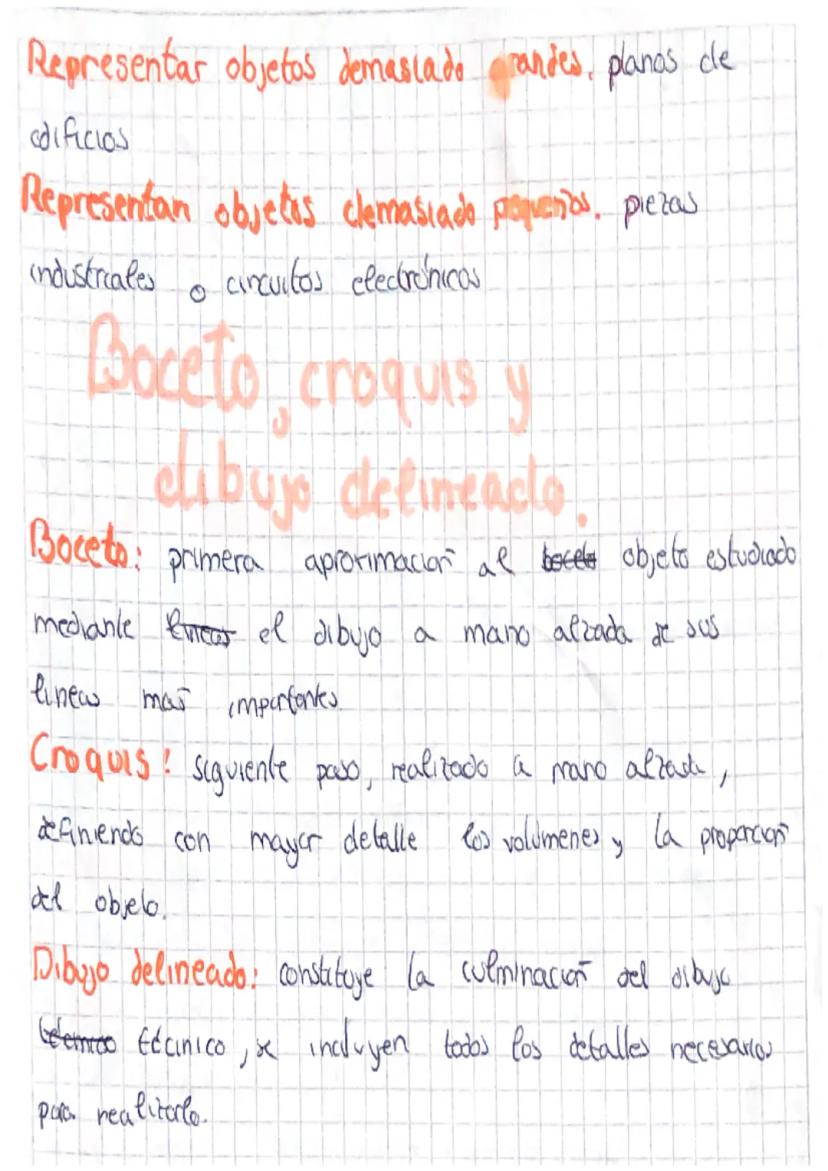 Representar objetos demasiado grandes. planos de
edificios
Representan objetos demasiado pequeños. piezas
industriales o circuitos electrónicos
Boceto, croquis y
dibujo delineado.
Boceto: primera aproximación al boceto objeto estudiado
mediante lineas el dibujo a mano alzada de sus
lineas mas importantes
Croquis: siguiente paso, realizado a mano alzada,
definiendo con mayor detalle los volúmenes y la proporción
del objeto.
Dibujo delineado: constituye la culminación del dibujo
técnico, se incluyen todos los detalles necesarios
para realizarlo.